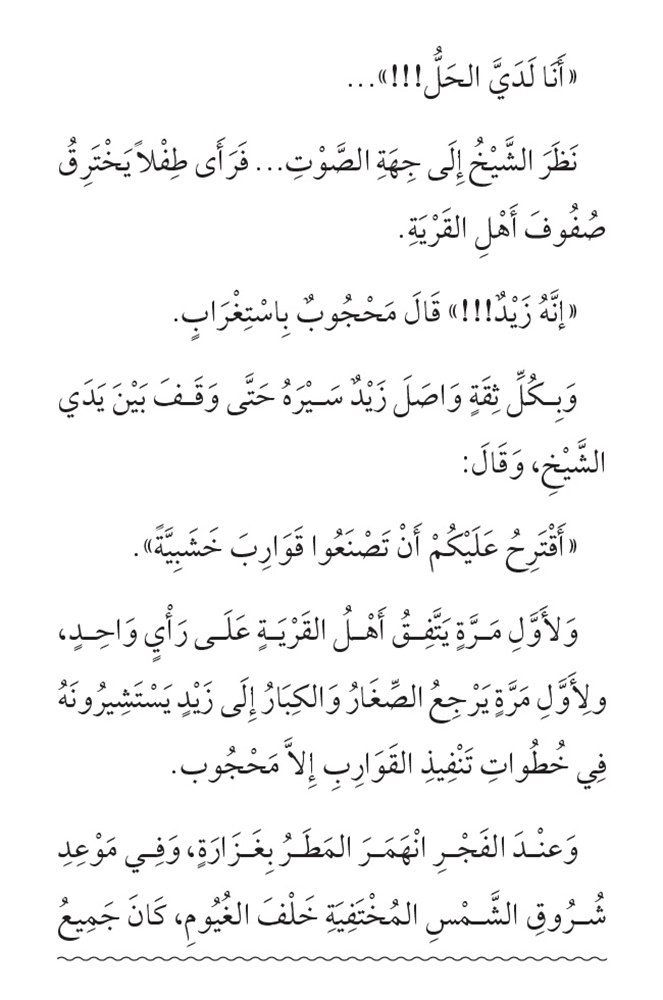 «أَنَا لَدَيَّ الحَلُّ!!!»...
نَظَرَ الشَّيْخُ إِلَى جِهَةِ الصَّوْتِ... فَرَأَى طِفْلاً يَخْتَرِقُ
صُفُوفَ أَهْلِ القَرْيَةِ.
«إِنَّهُ زَيْدٌ!!!» قَالَ مَحْجُوبٌ بِاسْتِغْرَابٍ.
وَبِكُلِّ ثِقَةٍ وَاصَلَ زَيْدٌ سَيْرَهُ حَتَّى وَقَفَ بَيْنَ يَدَي
الشَّيْخِ، وَقَالَ:
«أَقْتَرِحُ عَلَيْكُمْ أَنْ تَصْنَعُوا قَوَارِبَ خَشَبِيَّةً».
وَلأَوَّلِ مَرَّةٍ يَتَّفِقُ أَهْلُ القَرْيَةِ عَلَى رَأْيٍ وَاحِدٍ،
ولِأَوَّلِ مَرَّةٍ يَرْجِعُ الصِّغَارُ وَالكِبَارُ إِلَى زَيْدٍ يَسْتَشِيرُونَهُ
فِي خُطُواتِ تَنْفِيذِ القَوَارِبِ إِلاَّ مَحْجُوب.
وَعنْدَ الفَجْرِ انْهَمَرَ المَطَرُ بِغَزَارَةٍ، وَفِي مَوْعِدِ
شُرُوقِ الشَّمْسِ المُخْتَفِيَةِ خَلْفَ الغُيُومِ، كَانَ جَمِيعُ